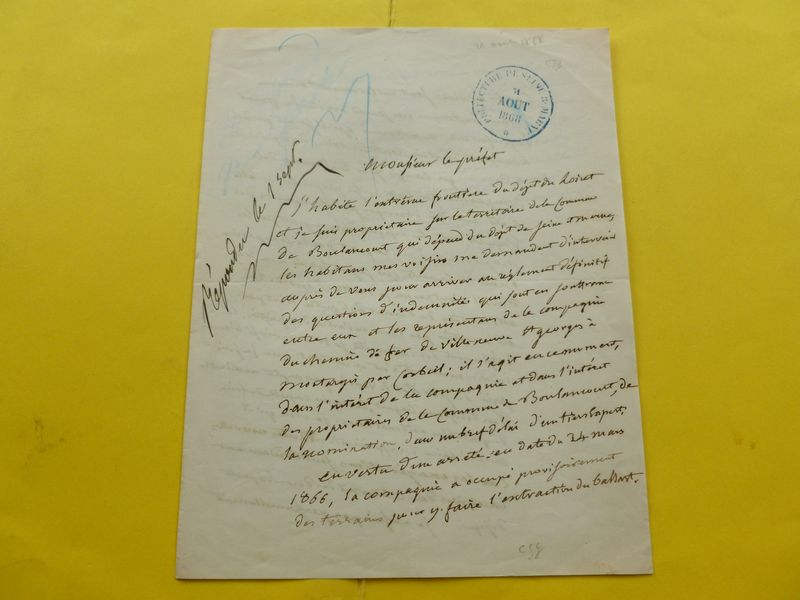 PRÉFECTURE DE SEINE & MARNE
31
AOÛT
1868
Répondu le 1 sept.
Monsieur le préfet
J'habite l'extrême frontière du dépt du Loiret
et je suis propriétaire sur le territoire de la Commune
de Boulancourt qui dépend du dépt de seine et marne;
les habitans mes voisins me demandent d'intervenir
auprès de vous pour arriver au règlement définitif
des questions d'indemnités qui sont en souffrance
entre eux et les représentans de la compagnie
du chemin de fer de Villeneuve St georges à
montargis par Corbeil; il s'agit en ce moment,
dans l'intérêt de la compagnie et dans l'intérêt
des propriétaires de la Commune de Boulancourt, de
la nomination, dans un bref délai d'un tiers Expert.
en vertu d'un arrêté en date du 24 mars
1866, la compagnie a occupé provisoirement
des terrains pour y faire l'extraction du ballast.